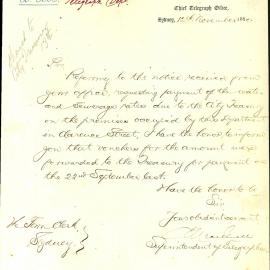 Chief Telegraph Office,
Sydney, 12th November 18
Sir
Referring to the notice received from
your office, requesting payment of the water
and Sewerage rates due to the City Treasury
on the premises occupied by this Department
in Clarence Street, I have the honor to inform
you that vouchers for the amount were
forwarded to the Treasury for payment on
the 22nd September last.
I have the honor to be
Sir
Your obedient servant
Superintendent of Telegraphs
The Town Clerk
Sydney